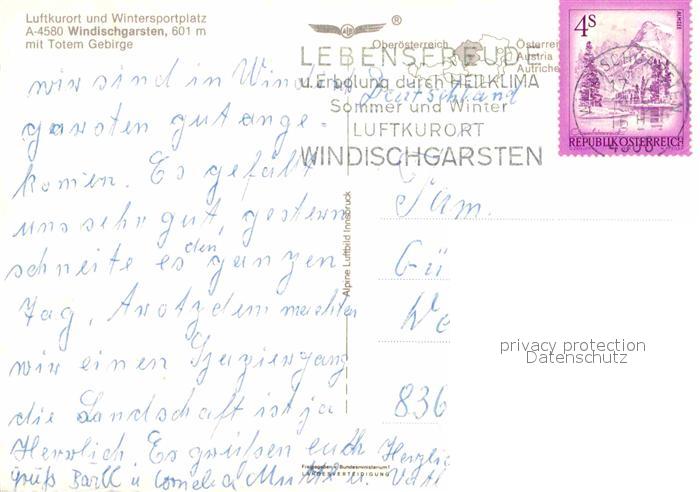 Luftkurort und Wintersportplatz
A-4580 Windischgarsten, 601 m
mit Totem Gebirge
ALPINE
®
Oberösterreich
Österreich
Austria
Autriche
LEBENSFREUDE
u. Erholung durch HEILKLIMA
Sommer und Winter
LUFTKURORT
WINDISCHGARSTEN
4S
ALMSEE
REPUBLIK ÖSTERREICH
wir sind in Windisch
garsten gut ange-
komen. Es gefält
uns sehr gut, gestern
schneite es den ganzen
Tag, trotzdem machten
wir einen Spaziergang
die Landschaft ist ja
Herrlich Es grüßen euch
Deutschland
Fam.
Gü
We
836
Herzlic
Grüß Bärbl u Cornelia Mutti u. Vati
Alpine Luftbild Innsbruck
Freigegeben v. Bundesministerium f.
LANDESVERTEIDIGUNG
privacy protection
Datenschutz